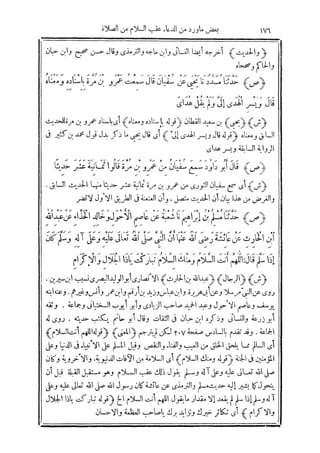 ١٧٦ بعض ماورد من الدعاء عقب السلام من الصلاة
﴿والحديث﴾ أخرجه أيضا النسائى وابن ماجه والترمذى وقال حسن صحيح وابن حبان
والحاكم وصححاه
﴿ص﴾ حَدَّثَنَا مُسَدَّدٌ نَا يَحْيَى عَنْ سُفْيَانَ قَالَ سَمِعْتُ عَمْرَو بْنَ مُرَّةَ بِإِسْنَادِهِ وَمَعْنَاهُ
قَالَ وَيَسِّرِ الْهُدَى إِلَىَّ وَلَمْ يَقُلْ هُدَاىَ
﴿ش﴾ ﴿يحيى﴾ بن سعيد القطان ﴿قوله بإسناده ومعناه﴾ أى باسناد عمرو بن مرة للحديث
السابق ومعناه ﴿قوله قال ويسر الهدى إلىّ﴾ أى قال يحيى ما ذكر بدل قول محمد بن كثير فى
الرواية السابقة ويسر هداى
﴿ص﴾ قَالَ أَبُو دَاوُدَ سَمِعَ سُفْيَانُ مِنْ عَمْرِو بْنِ مُرَّةَ قَالُوا ثَمَانِيَةَ عَشَرَ حَدِيثًا
﴿ش﴾ أى سمع سفيان الثورى من عمرو بن مرة ثمانية عشر حديثا منها الحديث السابق.
والغرض من هذا بيان أن الحديث متصل. وأن العنعنة فى الطريق الأول لاتضر
﴿ص﴾ حَدَّثَنَا مُسْلِمُ بْنُ إِبْرَاهِيمَ نَا شُعْبَةُ عَنْ عَاصِمٍ الْأَحْوَلِ وَخَالِدٍ الْحَذَّاءِ عَنْ عَبْدِ اللهِ
ابْنِ الْحَارِثِ عَنْ عَائِشَةَ رَضِىَ اللهُ عَنْهَا أَنَّ النَّبِىَّ صَلَّى اللهُ تَعَالَى عَلَيْهِ وَعَلَى آلِهِ وَسَلَّمَ كَانَ
إِذَا سَلَّمَ قَالَ اللَّهُمَّ أَنْتَ السَّلَامُ وَمِنْكَ السَّلَامُ تَبَارَكْتَ يَا ذَا الْجَلَالِ وَالْإِكْرَامِ
﴿ش﴾ ﴿الرجال﴾ ﴿عبدالله بن الحارث﴾ الأنصارى أبو الوليد البصرى نسيب ابن سيرين.
روى عن النبى مرسلا وعن أبى هريرة وابن عباس وزيد بن أرقم وابن عمر وأنس وغيرهم. وعنه ابنه
يوسف وعاصم الأحول وعبد الحميد صاحب الزيادى وأيوب السختيانى وجماعة. وثقه
أبو زرعة والنسائى وذكره ابن حبان فى الثقات وقال أبو حاتم يكتب حديثه. روى له
الجماعة. وقد تقدم بالسادس صفحة ٢٠٧ لكن لم يترجم ﴿المعنى﴾ ﴿قوله اللهم أنت السلام﴾
أى السالم مما يلحق الخلق من العيب والفناء والنقص وقيل المسلم على الأنبياء فى الدنيا وعلى
المؤمنين فى الجنة ﴿قوله ومنك السلام﴾ أى السلامة من الآفات الدنيوية والأخروية وكان
صلى الله تعالى عليه وعلى آله وسلم يقول ذلك عقب السلام وهو مستقبل القبلة قبل أن
يتحول كما يشير إليه حديث مسلم والترمذى عن عائشة كان رسول الله صلى الله تعالى عليه وعلى
آله وسلم إذا سلم لم يقعد إلا مقدار مايقول اللهم أنت السلام الخ ﴿قوله تباركت ياذا الجلال
والاكرام﴾ أى تكاثر خيرك وتزايد برك ياصاحب العظمة والاحسان